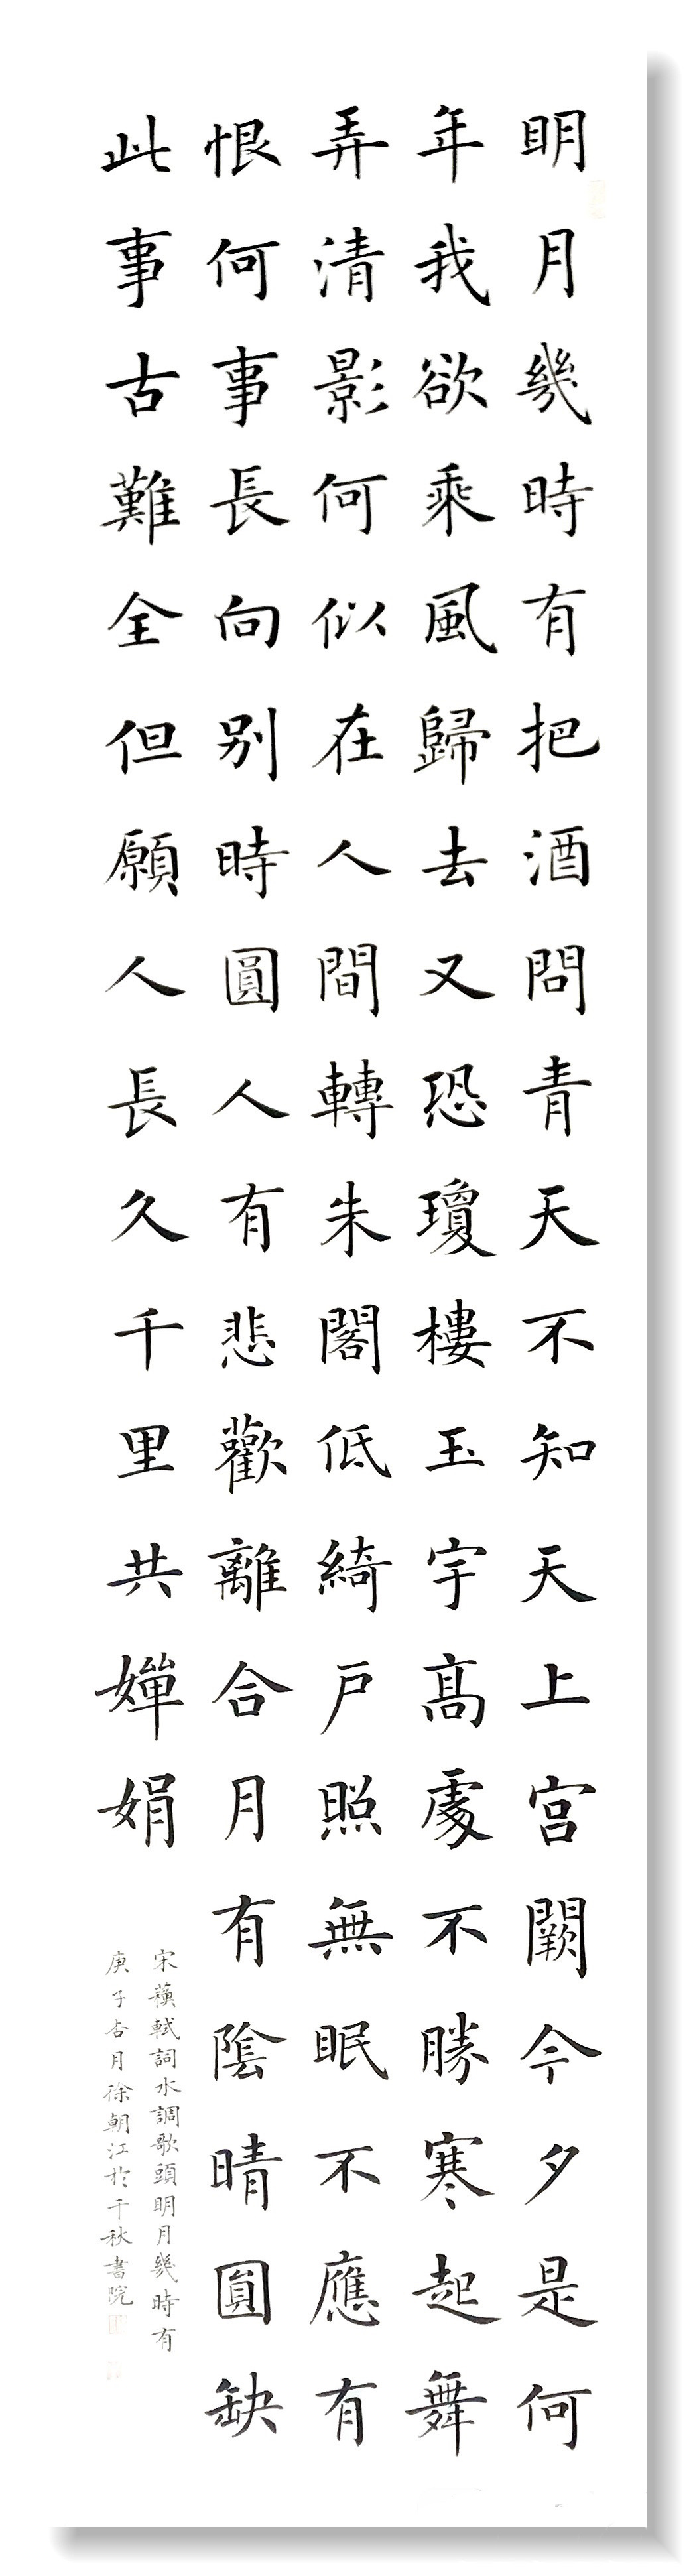 明月幾時有把酒問青天不知天上宮闕今夕是何
年我欲乘風歸去又恐瓊樓玉宇高處不勝寒起舞
弄清影何似在人間轉朱閣低綺戶照無眠不應有
恨何事長向別時圓人有悲歡離合月有陰晴圓缺
此事古難全但願人長久千里共嬋娟
宋蘇軾詞水調歌頭明月幾時有
庚子杏月徐朝江於千秋書院